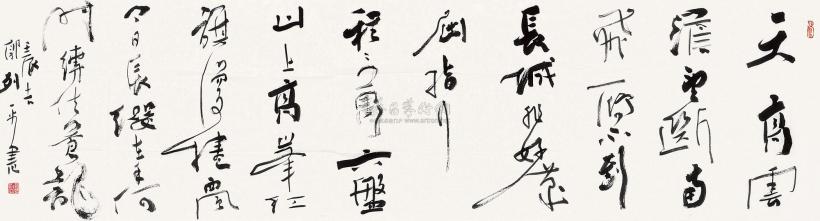 天高雲
淡望斷南
飛雁不到
長城非好漢
屈指行
程二萬六盤
山上高峰红
旗漫捲風
今日長纓在手何
時縛住蒼龍
郭列平書